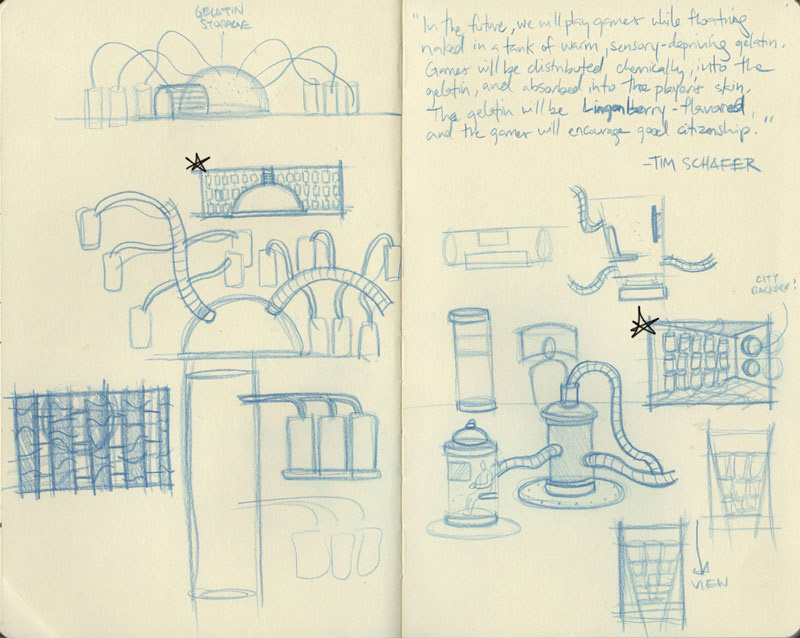 GELATIN
STORAGE
"In the future, we will play games while floating
naked in a tank of warm, sensory-depriving gelatin.
Games will be distributed chemically, into the
gelatin, and absorbed into the player's skin.
The gelatin will be Lingonberry-flavored,
and the games will encourage good citizenship."
-TIM SCHAFER
CITY
BACKDROP?
VIEW